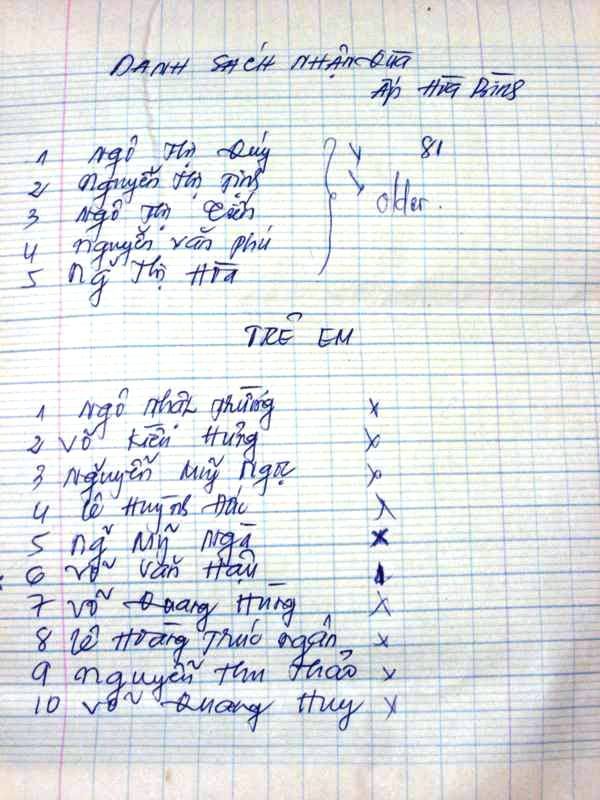 DANH SÁCH NHẬN QUÀ
Ấp Hòa Bình
1 Ngô Thị Quý 81
2 Nguyễn Thị Tịnh older.
3 Ngô Thị
4 Nguyễn Văn Phú
5 Ng~ Thị Hòa
TRẺ EM
1 Ngô Nhật Trường x
2 Võ Kiến Hưng x
3 Nguyễn Mỹ Ngọc x
4 Lê Huỳnh Đức x
5 Ng~ Mỹ Ngà x
6 Võ Văn Hậu
7 Võ Quang Hùng x
8 Lê Hoàng Trúc Ngân x
9 Nguyễn Thu Thảo x
10 Võ Quang Huy x